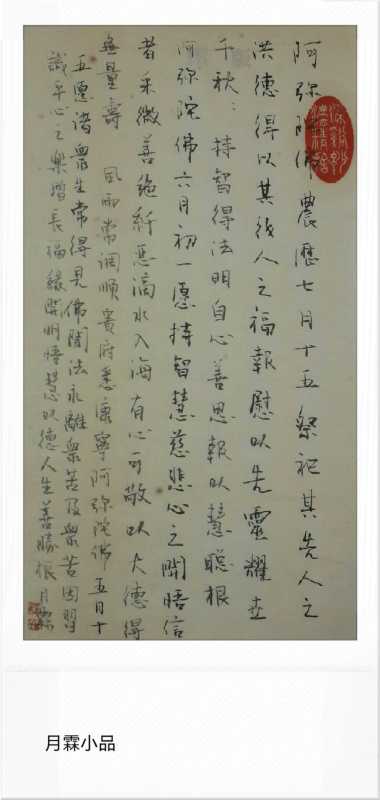 阿弥陀佛 農歷七月十五祭祀其先人之
洪德得以其後人之福報慰以先靈耀世
千秋：持智得法明自心善思報以慧聰根
阿弥陀佛六月初一愿持智慧慈悲心之開悟信
者采微善絶纤惡滴水入海有心可敬以大德得
無量壽 風雨常调順賓府悉康寧阿弥陀佛 五月十
五愿諸衆生常得見佛闻法永離衆苦及衆苦因習
識平心之樂增長福緣開明悟慧以德人生善勝根 月霖
月霖小品